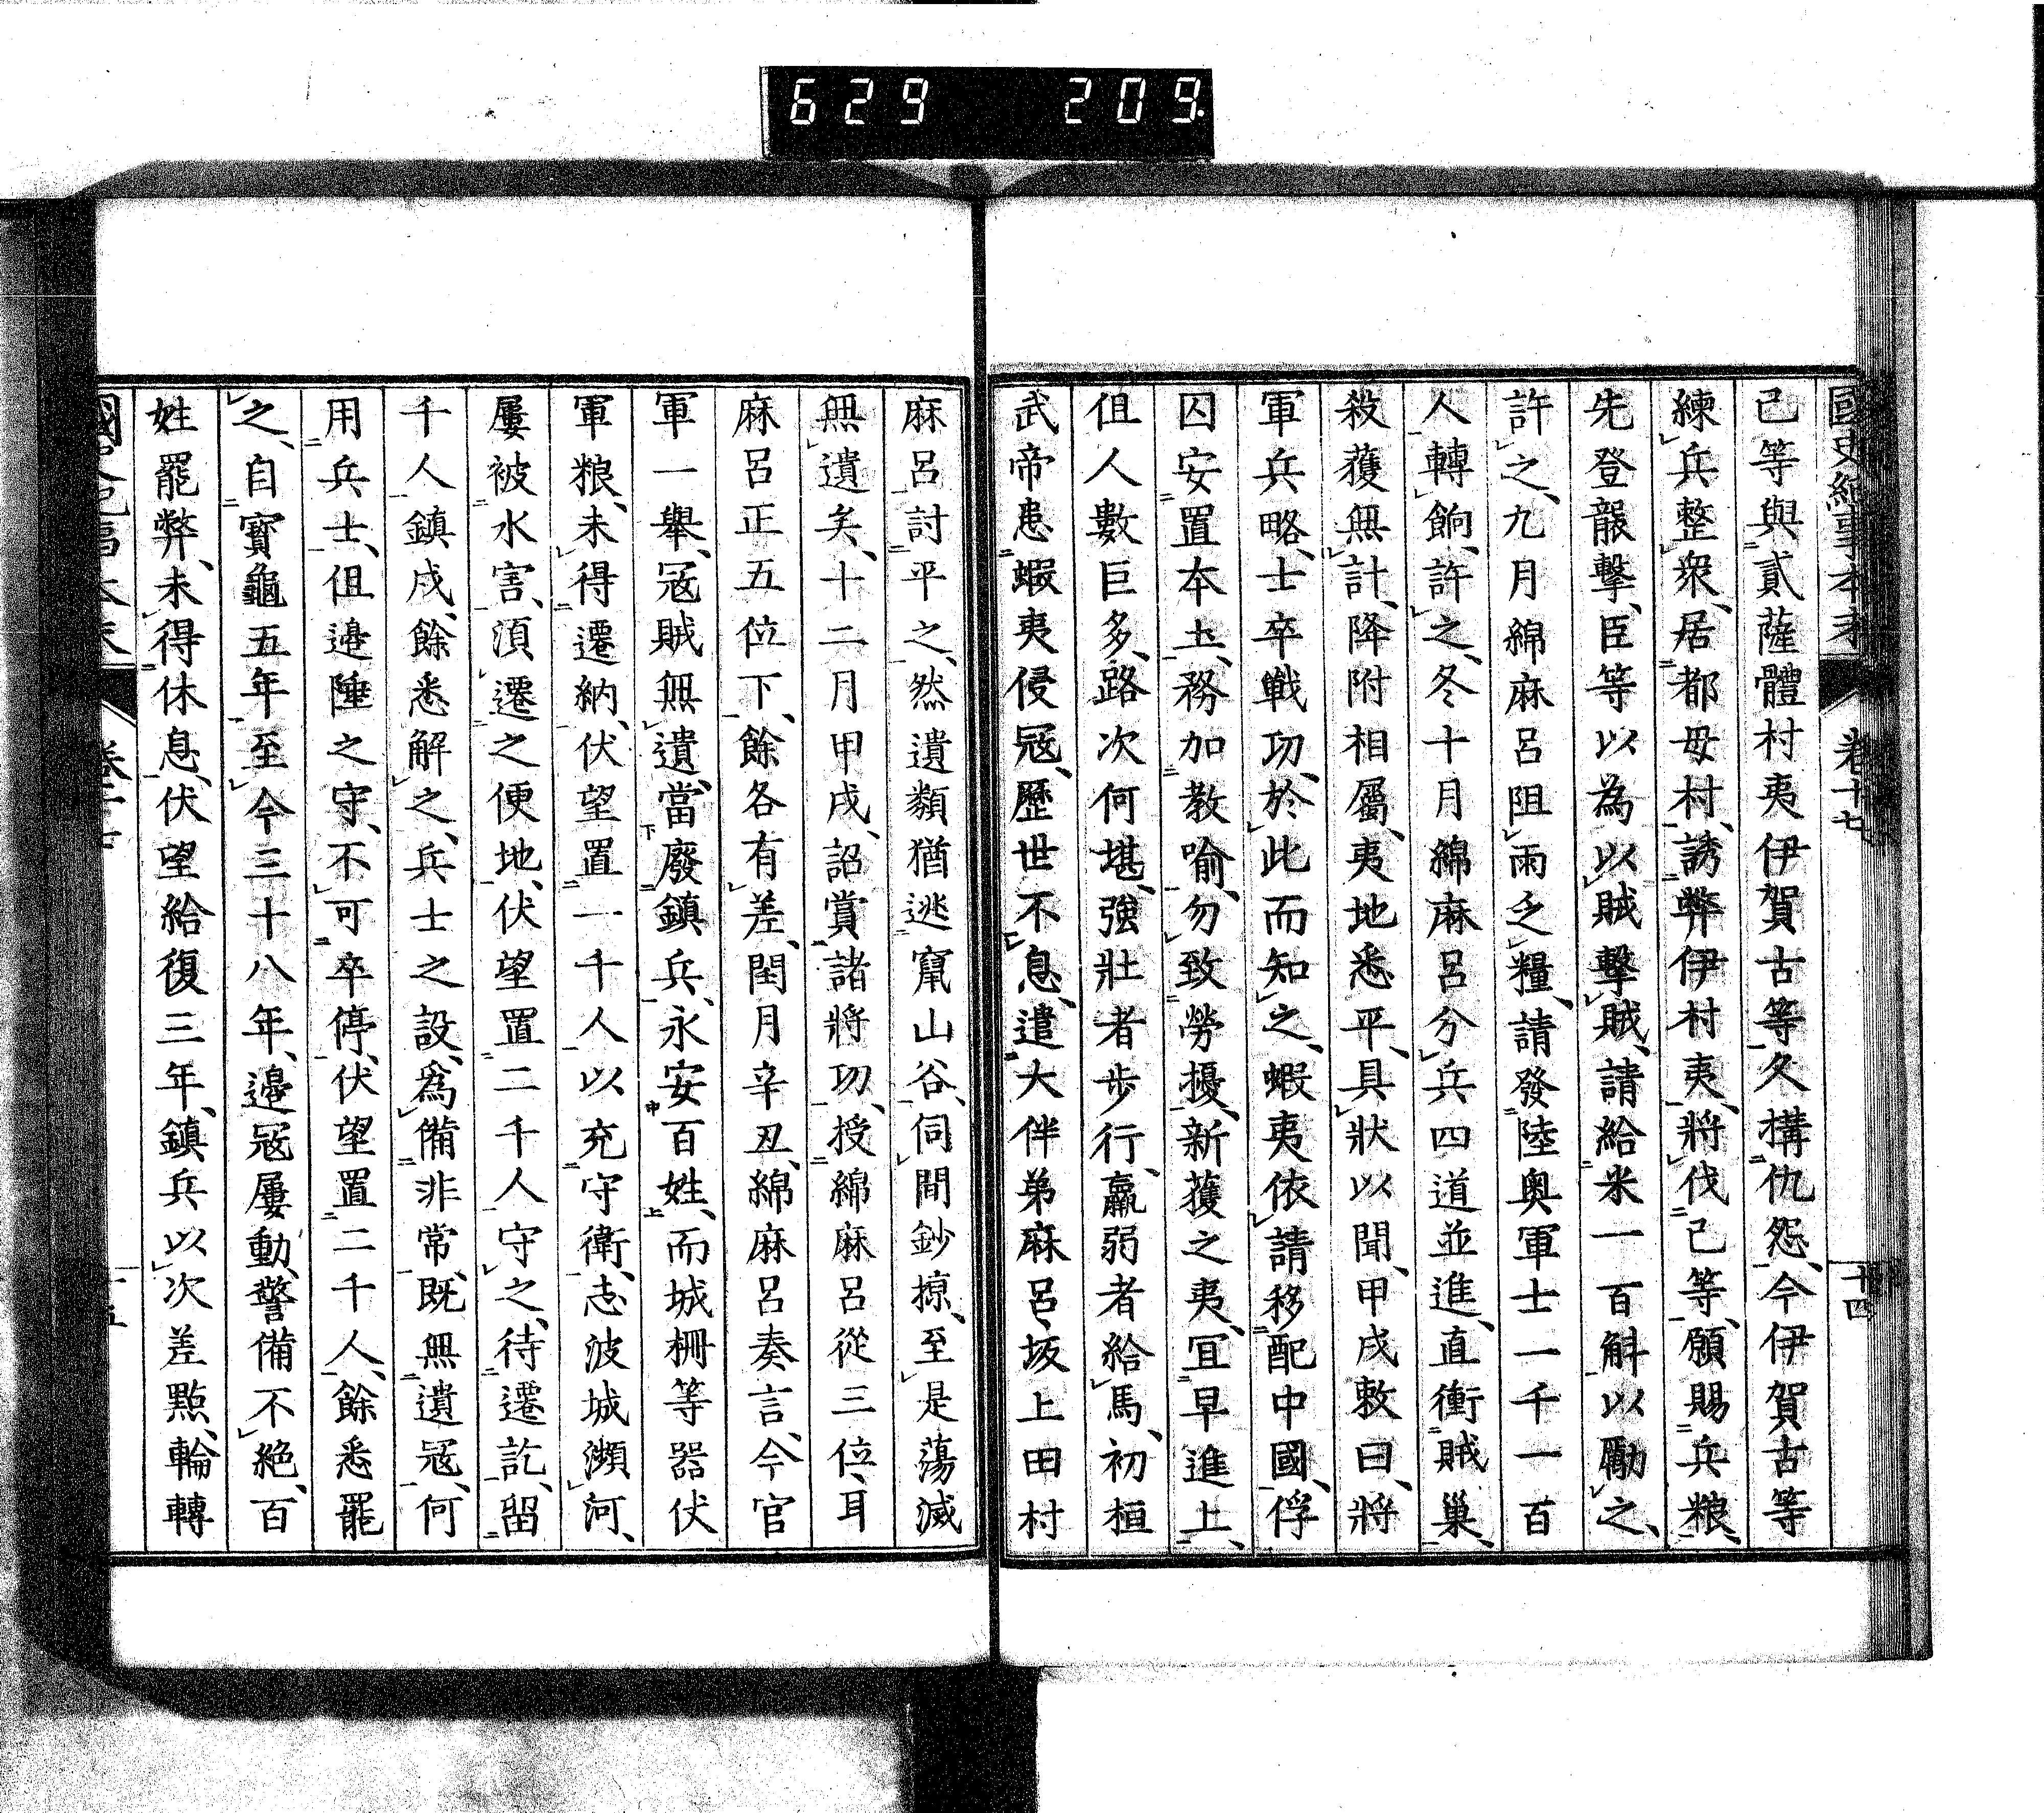 629 209.
國史紀事本末 卷十七 十四
己等與貳薩體村夷伊賀古等久構仇怨、今伊賀古等
練兵整衆、居都母村、誘弊伊村夷、將伐己等、願賜兵粮、
先登襲擊、臣等以為以賊擊賊、請給米一百斛以勵之、
許之、九月綿麻呂阻雨乏糧、請發陸奥軍士一千一百
人轉餉、許之、冬十月綿麻呂分兵四道並進、直衝賊巢、
殺獲無計、降附相屬、夷地悉平、具狀以聞、甲戌敕曰、將
軍兵略、士卒戰功、於此而知之、蝦夷依請移配中國、俘
囚安置本土、務加教喻、勿致勞擾、新獲之夷、宜早進上、
但人數巨多、路次何堪、強壯者步行、羸弱者給馬、初桓
武帝患蝦夷侵冦、歷世不息、遣大伴弟麻呂、坂上田村
麻呂討平之、然遺類猶逃竄山谷、伺間鈔掠、至是蕩滅
無遺矣、十二月甲戌、詔賞諸將功、授綿麻呂從三位、耳
麻呂正五位下、餘各有差、閏月辛丑、綿麻呂奏言、今官
軍一舉、冦賊無遺、當廢鎮兵、永安百姓、而城柵等器伏
軍粮、未得遷納、伏望置一千人以充守衛、志波城瀕河、
屢被水害、湏遷之便地、伏望置二千人守之、待遷訖、留
千人鎮戍、餘悉解之、兵士之設、爲備非常、既無遺冦、何
用兵士、但邊陲之守、不可卒停、伏望置二千人、餘悉罷
之、自寶龜五年至今三十八年、邊冦屢動、警備不絶、百
姓罷弊、未得休息、伏望給復三年、鎮兵以次差點、輪轉